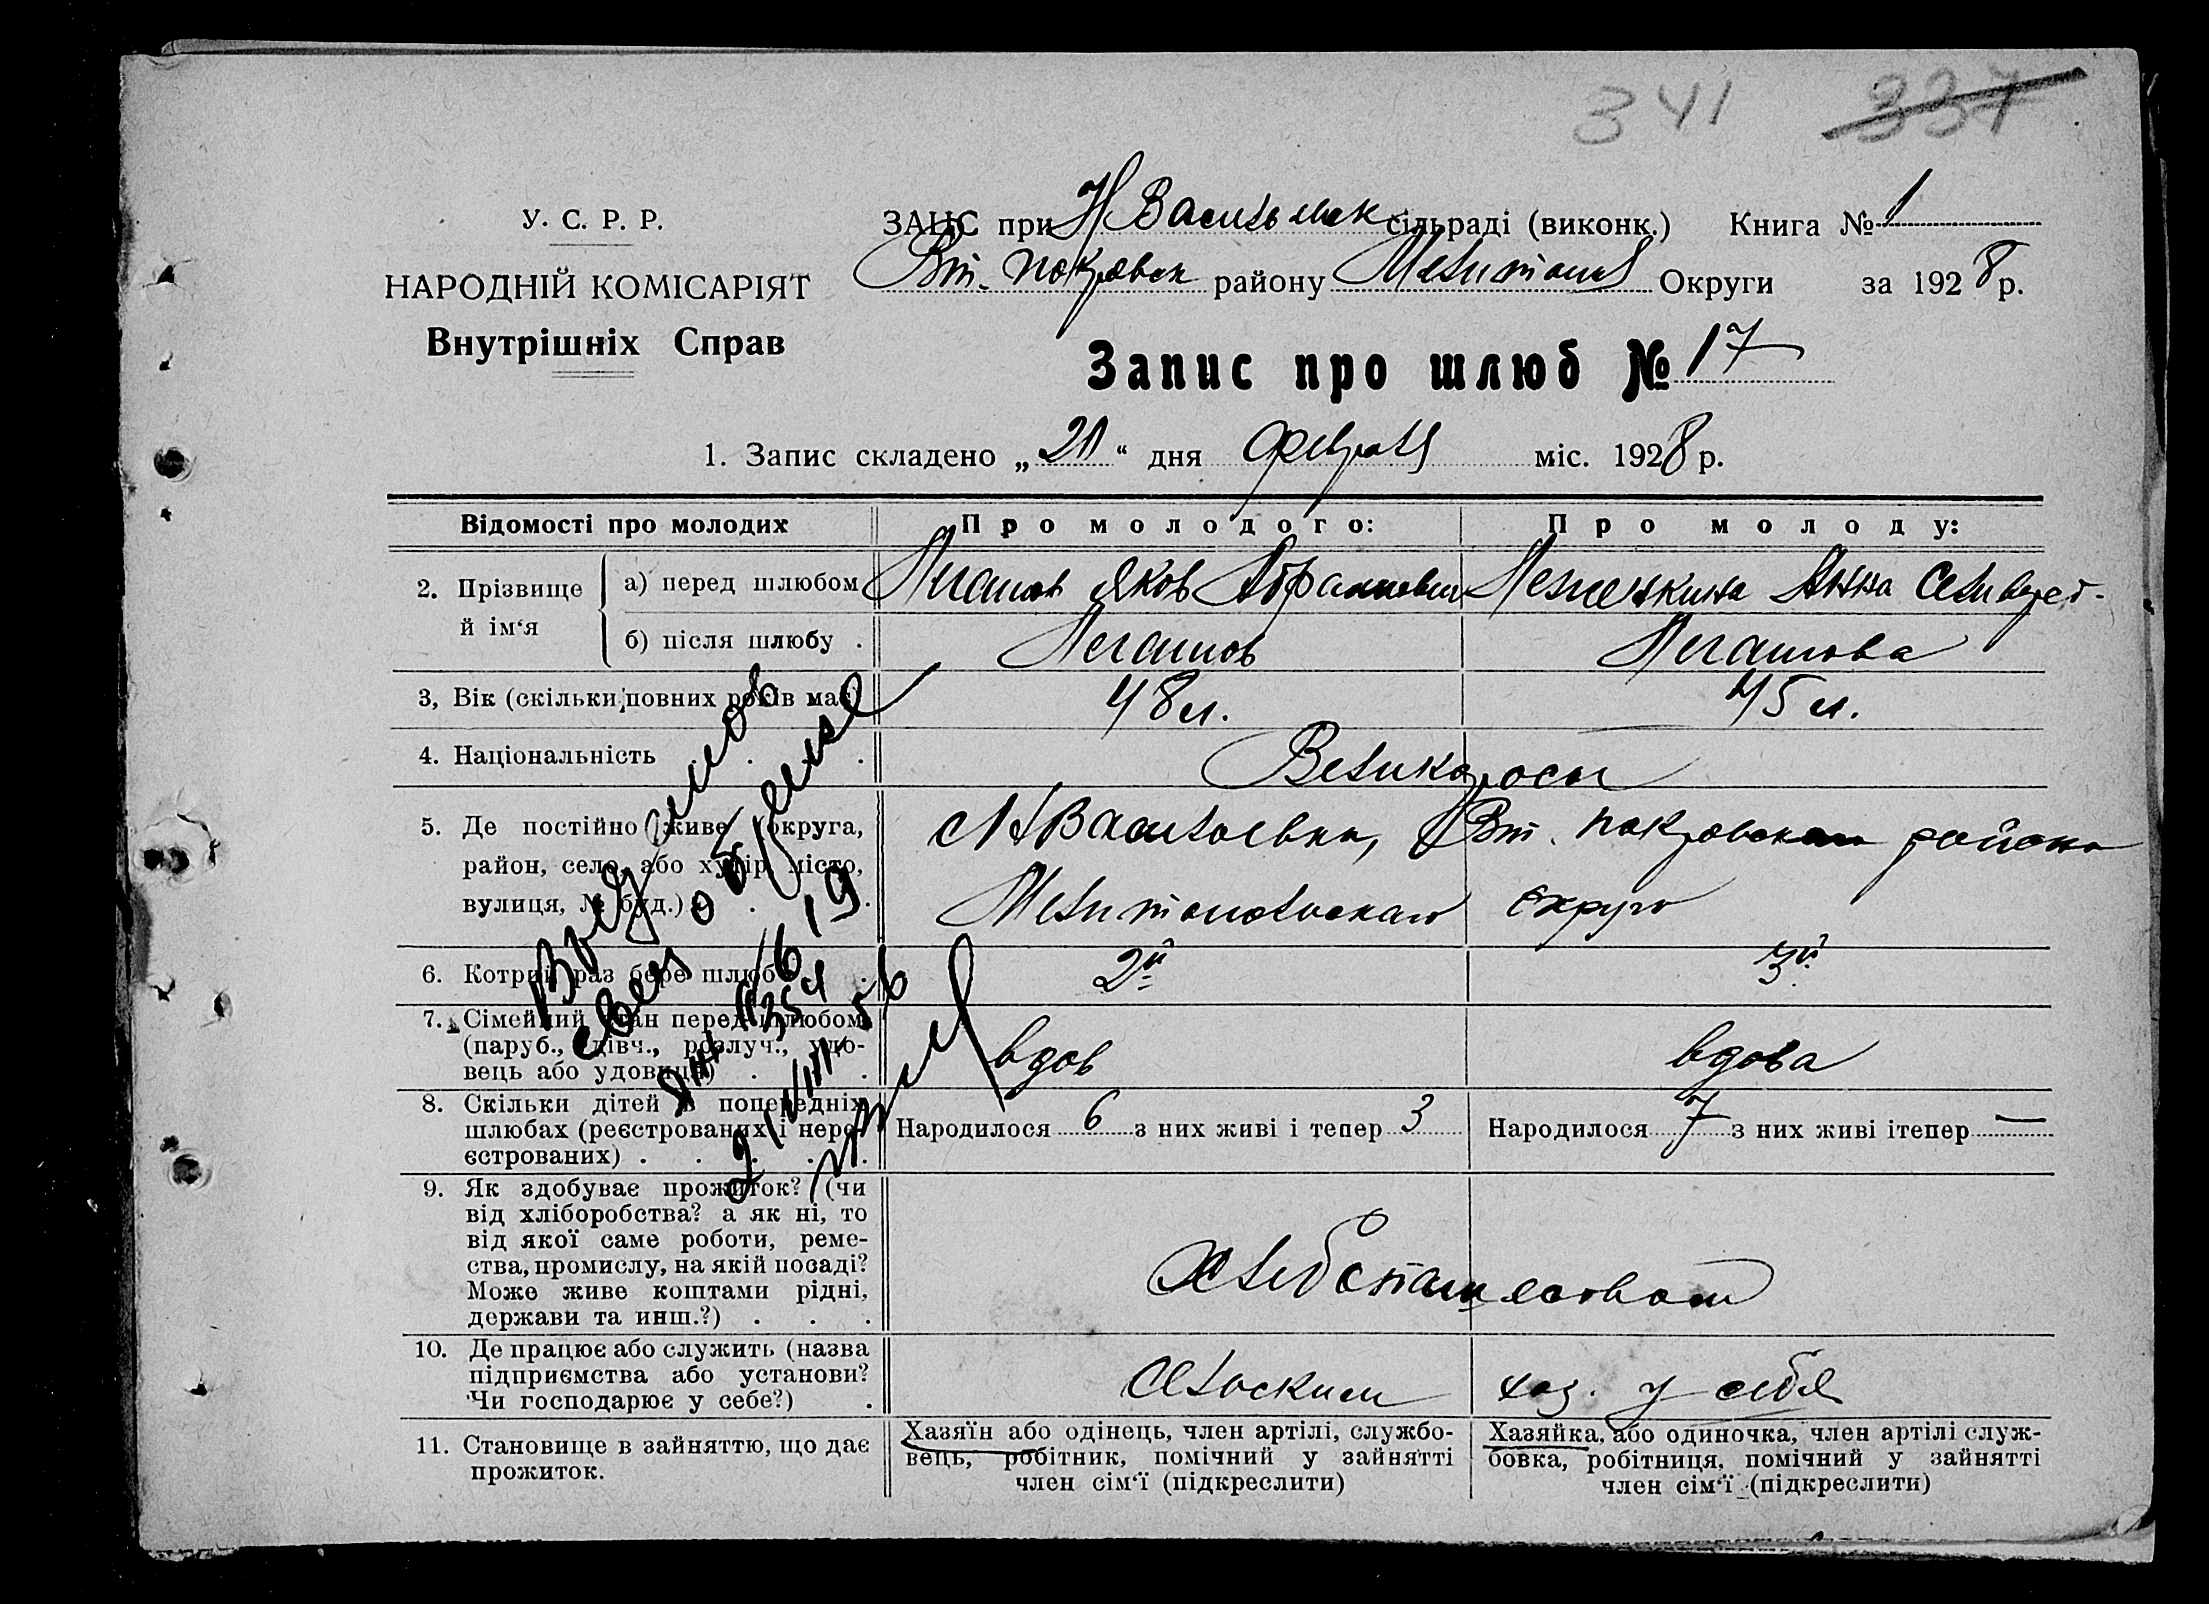 341 337
У. С. Р. Р.
НАРОДНІЙ КОМІСАРІЯТ
Внутрішніх Справ
ЗАЦС при Н Васильевск сільраді (виконк.) Книга № 1
Вт. Покровск району Мелитопол Округи за 1928 р.
Запис про шлюб № 17
1. Запис складено „21“ дня февраля міс. 1928 р.
Відомості про молодих
Про молодого:
Про молоду:
2. Прізвище й ім‘я
а) перед шлюбом
Яков Абрамович
Анна
б) після шлюбу .
3, Вік (скільки повних років має)
48 л.
45 л.
4. Національність . . .
Великоросы
5. Де постійно живе (округа,
район, село, або хутір, місто,
вулиця, № буд.) . . .
Н Васильевка, Вт. Покровского района
Мелитопольского округа
6. Котрий раз бере шлюб .
2й
3й
7. Сімейний стан перед шлюбом
(паруб., дівч., розлуч., удо-
вець або удовиця) . .
вдов
вдова
8. Скільки дітей в попередніх
шлюбах (реєстрованих і нере-
єстрованих) . . . . .
Народилося 6 з них живі і тепер 3
Народилося 7 з них живі ітепер —
9. Як здобуває прожиток? (чи
від хліборобства? а як ні, то
від якої саме роботи, реме-
ства, промислу, на якій посаді?
Може живе коштами рідні,
держави та инш.?) . . .
Хлебопашеством
10. Де працює або служить (назва
підприємства або установи?
Чи господарює у себе?) .
Сельским хоз. у себя
11. Становище в зайняттю, що дає
прожиток.
Хазяїн або одінець, член артілі, службо-
вець, робітник, помічний у зайнятті
член сім‘ї (підкреслити)
Хазяйка, або одиночка, член артілі служ-
бовка, робітниця, помічний у зайнятті
член сім‘ї (підкреслити)